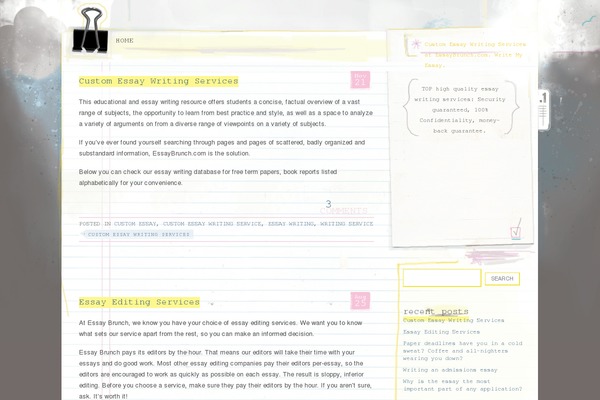 HOME
Custom Essay Writing Services
Nov
21
This educational and essay writing resource offers students a concise, factual overview of a vast
range of subjects, the opportunity to learn from best practice and style, as well as a space to analyze
a variety of arguments on from a diverse range of viewpoints on a variety of subjects.
If you've ever found yourself searching through pages and pages of scattered, badly organized and
substandard information, EssayBrunch.com is the solution.
Below you can check our essay writing database for free term papers, book reports listed
alphabetically for your convenience.
3
COMMENTS
POSTED IN CUSTOM ESSAY, CUSTOM ESSAY WRITING SERVICE, ESSAY WRITING, WRITING SERVICE
CUSTOM ESSAY WRITING SERVICES
Essay Editing Services
25
At Essay Brunch, we know you have your choice of essay editing services. We want you to know
what sets our service apart from the rest, so you can make an informed decision.
Essay Brunch pays its editors by the hour. That means our editors will take their time with your
essays and do good work. Most other essay editing companies pay their editors per-essay, so the
editors are encouraged to work as quickly as possible on each essay. The result is sloppy, inferior
editing. Before you choose a service, make sure they pay their editors by the hour. If you aren't sure,
ask. It's worth it!
Custom Essay Writing Services
at EssayBrunch.com. Write My
Essay.
TOP high quality essay
writing services: Security
guaranteed, 100%
Confidentiality, money-
back guarantee.
SEARCH
recent posts
Custom Essay Writing Services
Essay Editing Services
Paper deadlines have you in a cold
sweat? Coffee and all-nighters
wearing you down?
Writing an admissions essay
Why is the essay the most
important part of any application?